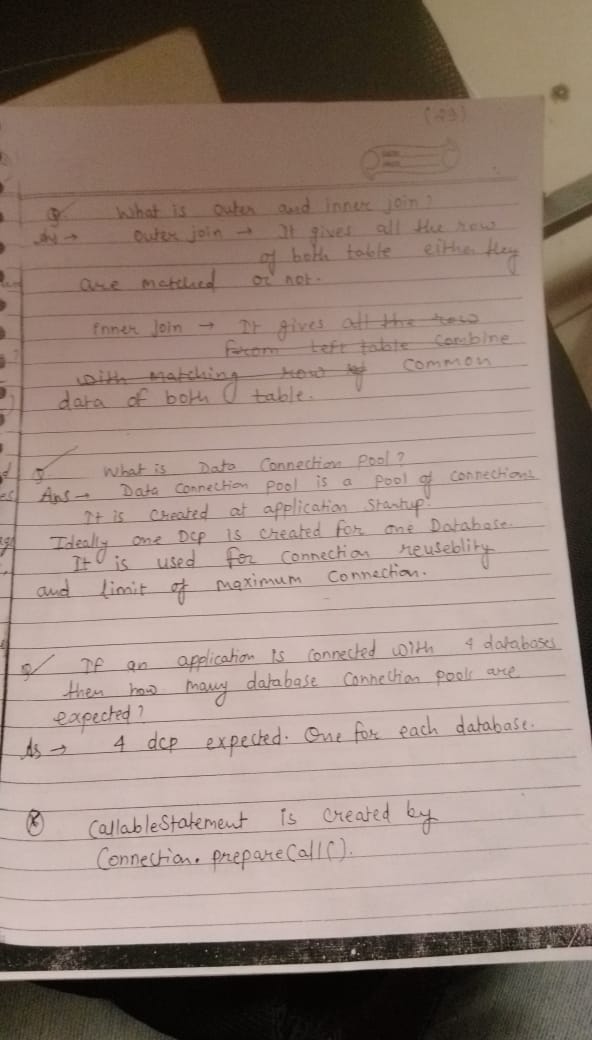 (23)
Q. What is outer and inner join?
Ans → outer join → It gives all the row
of both table either they
are matched or not.
Inner Join → It gives all the row
from left table combine
with matching row of common
data of both table.
Q What is Data Connection Pool?
Ans → Data Connection pool is a pool of connections
It is created at application startup.
Ideally one DCP is created for one Database.
It is used for connection reuseblity
and limit of maximum connection.
Q If an application is connected with 4 databases
then how many database connection pools are
expected?
As → 4 dcp expected. One for each database.
CallableStatement is created by
Connection.prepareCall().